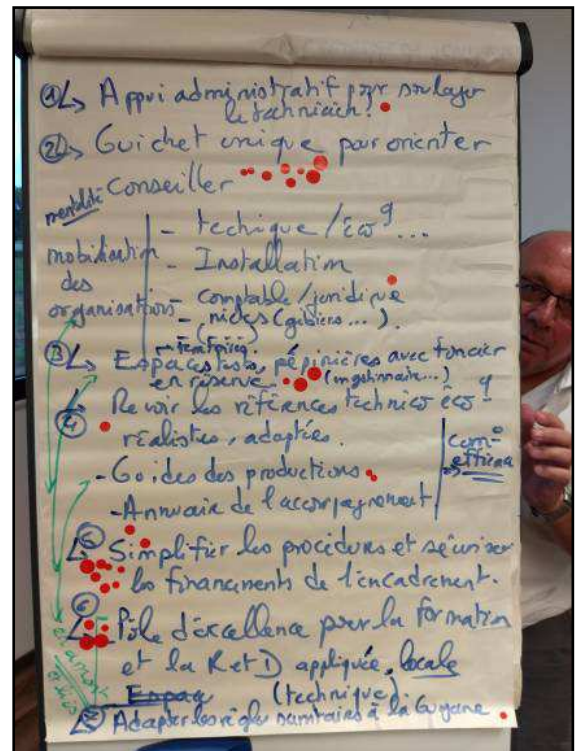 ① Appui administratif pour soulager
le technicien.
② Guichet unique pour orienter
conseiller
mentalité
- techique / éco
mobilisation - Installation
des
organisations - comptable / juridique
- niches (gibiers ...).
③ Espaces tests, pépinières avec foncier
en réserve (mgestionnaire...)
④ Revoir les références technico éco
réalistes, adaptées.
- Guides des productions
- Annuaire de l'accompagnement
com°
efficace
⑤ Simplifier les procédures et sécuriser
les financements de l'encadrement.
⑥ Pôle d'excellence pour la formation
et la R et D appliquée, locale
Espag (technique).
⑦ Adapter les règles sanitaires à la Guyane.